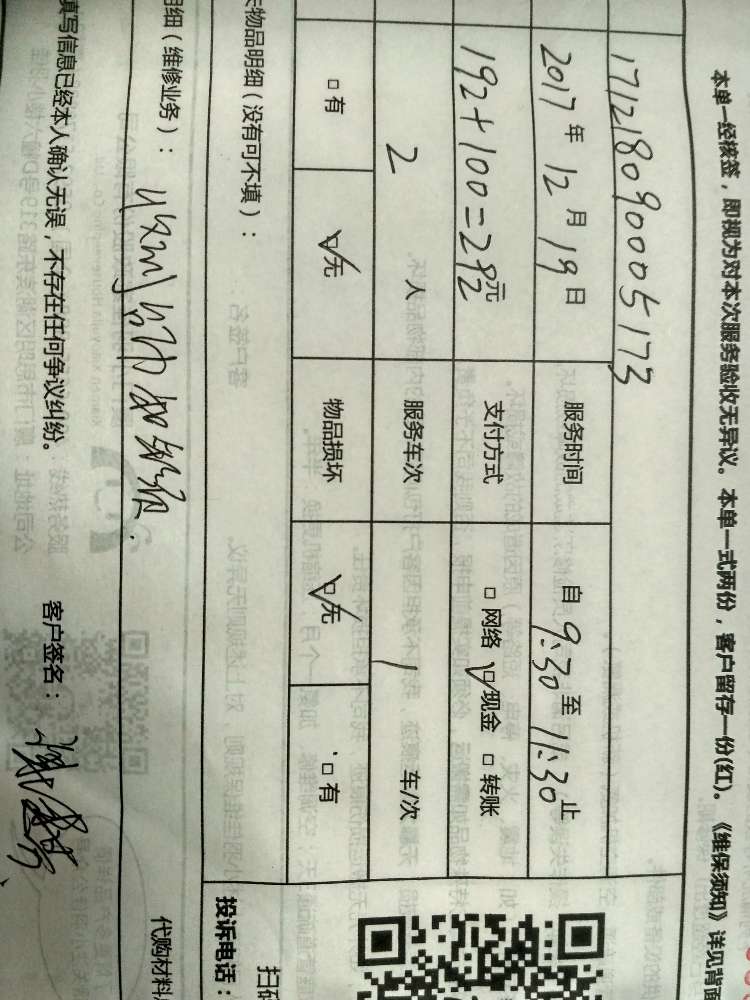 本单一经核签，即视为对本次服务验收无异议。本单一式两份，客户留存一份(红)。《维保须知》详见背面
171218090005173
2017年12月19日 服务时间 自9:30至11:30止
192+100=292元 支付方式 □网络 ☑现金 □转账
2人 服务车次 1车/次
□有 ☑无 物品损坏 ☑无 □有
物品明细（没有可不填）：
明细（维修业务）：
填写信息已经本人确认无误，不存在任何争议纠纷。 客户签名：
投诉电话：
扫码
代购材料